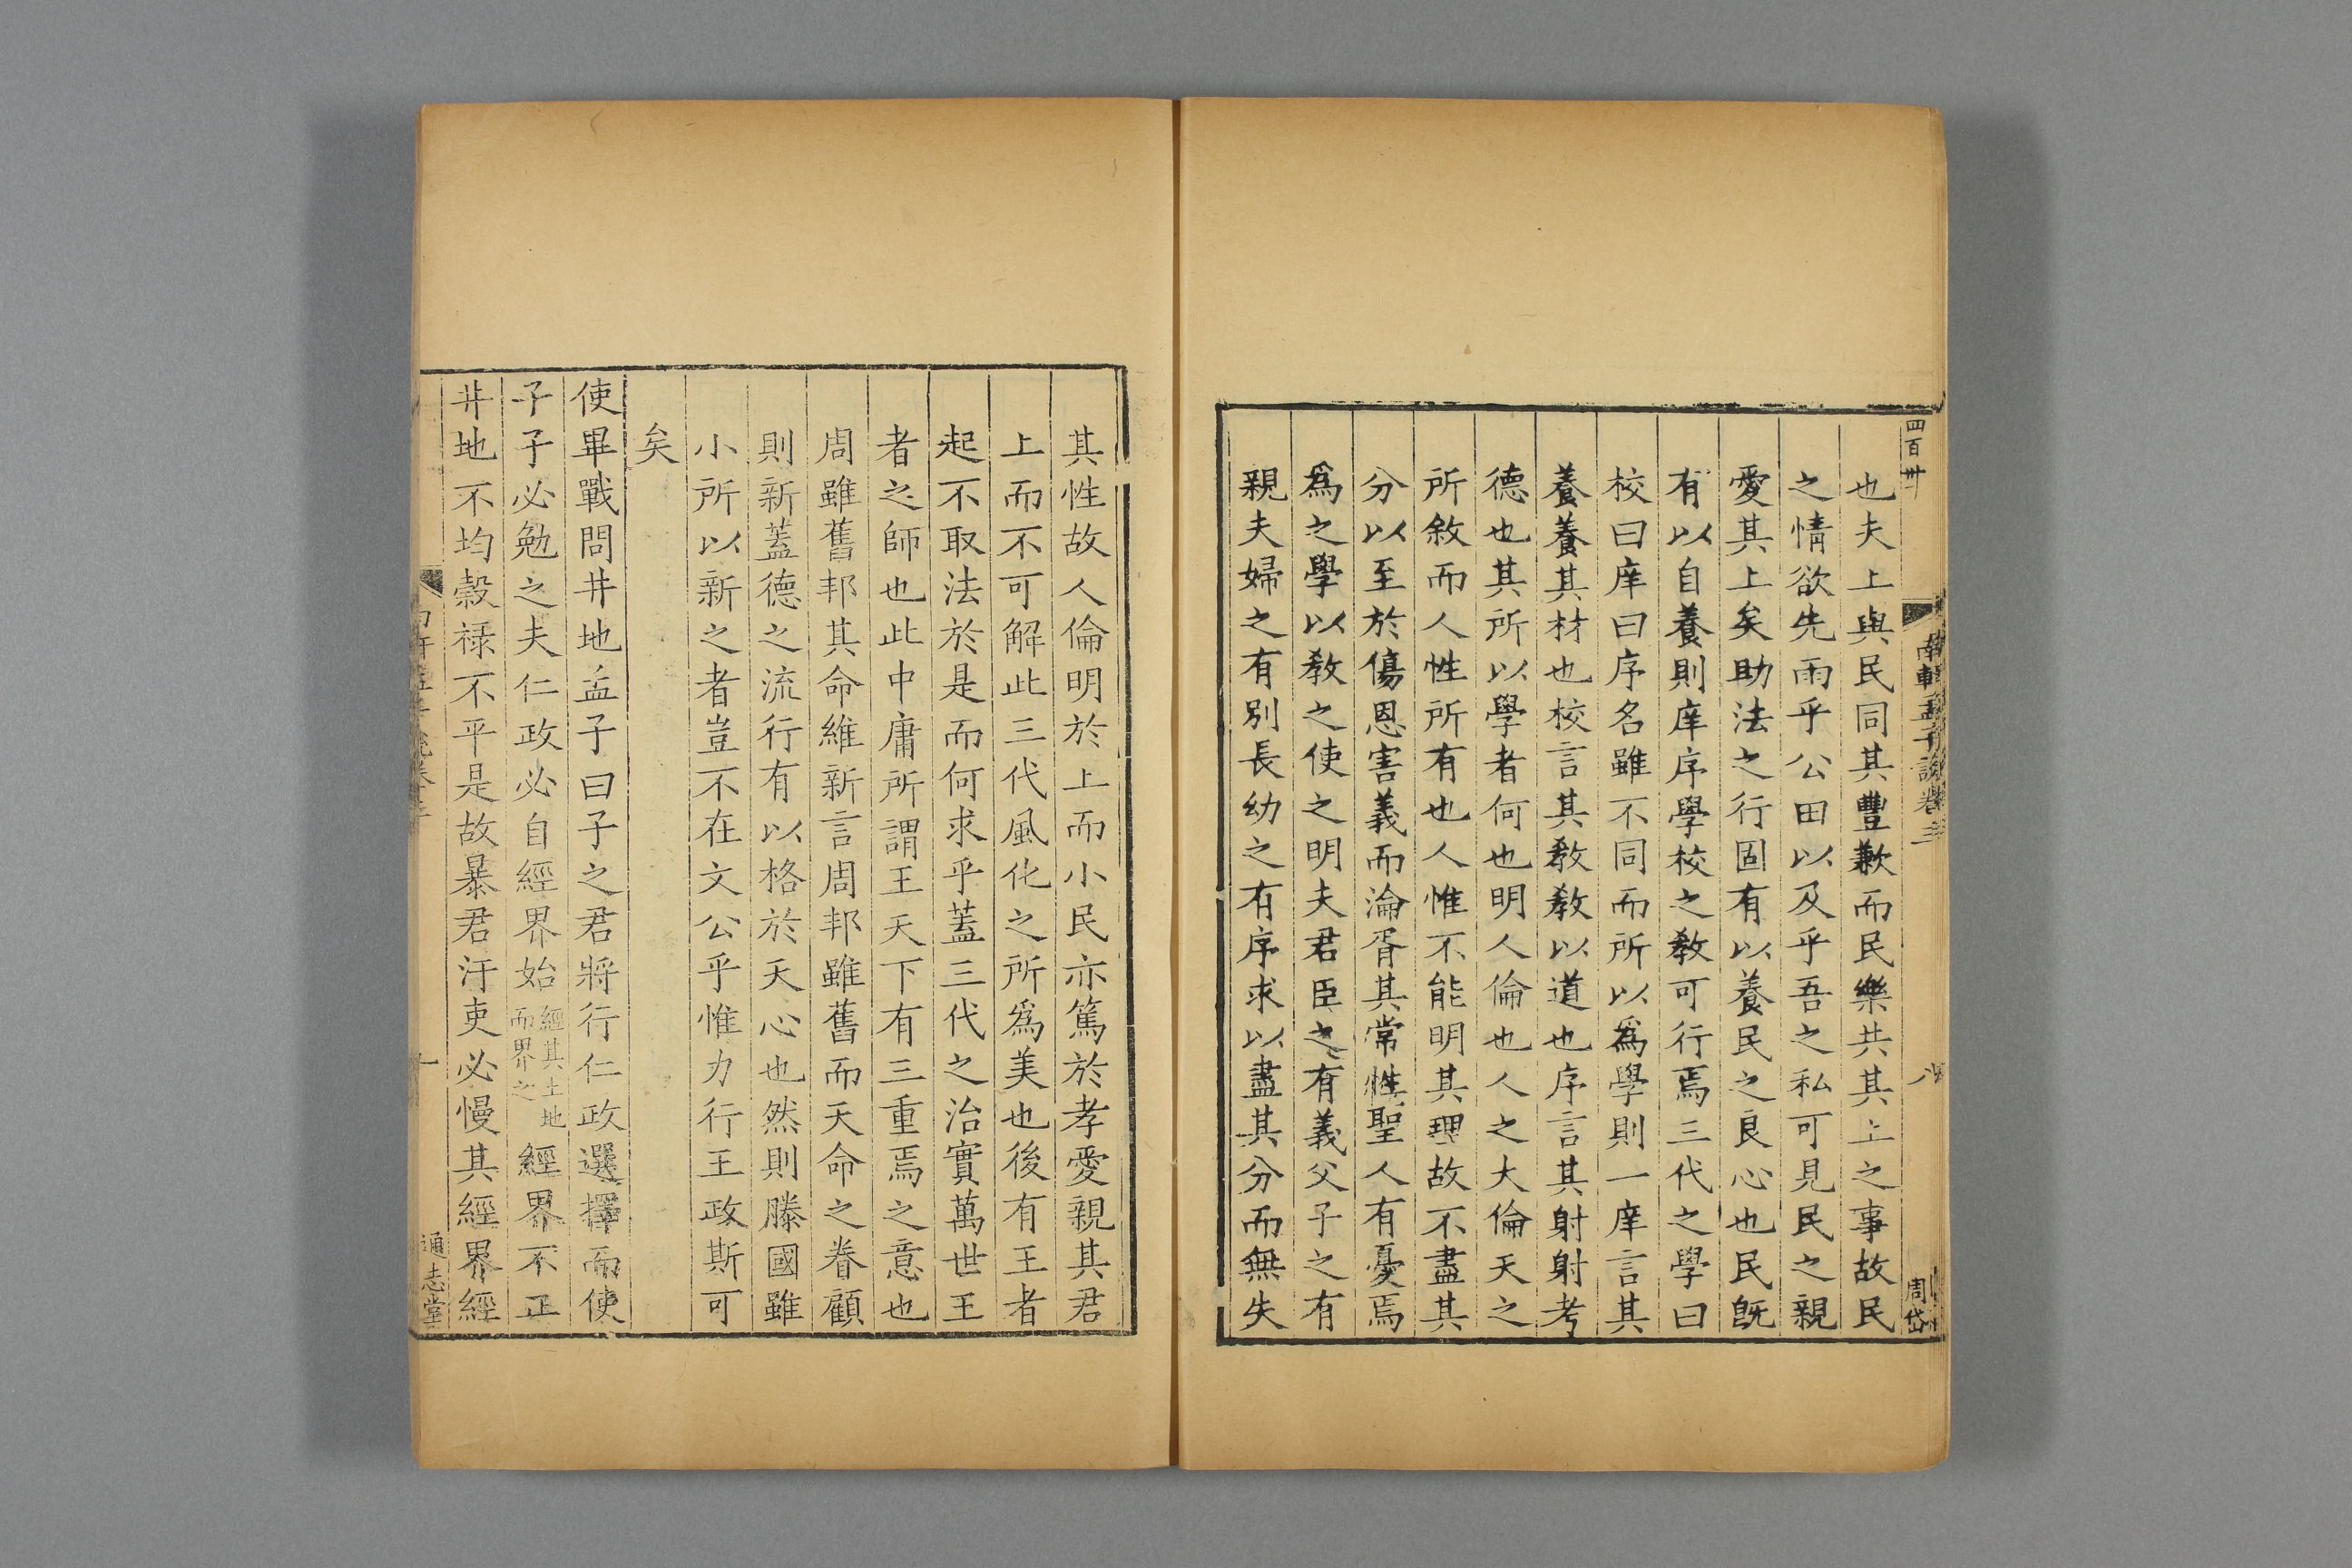 四百卅
南軒孟子說卷三
八
周岱
也夫上與民同其豐歉而民樂共其上之事故民
之情欲先雨乎公田以及乎吾之私可見民之親
愛其上矣助法之行固有以養民之良心也民旣
有以自養則庠序學校之教可行焉三代之學曰
校曰庠曰序名雖不同而所以爲學則一庠言其
養養其材也校言其教教以道也序言其射射考
德也其所以學者何也明人倫也人之大倫天之
所敘而人性所有也人惟不能明其理故不盡其
分以至於傷恩害義而淪胥其常性聖人有憂焉
爲之學以教之使之明夫君臣之有義父子之有
親夫婦之有别長幼之有序求以盡其分而無失
其性故人倫明於上而小民亦篤於孝愛親其君
上而不可解此三代風化之所爲美也後有王者
起不取法於是而何求乎蓋三代之治實萬世王
者之師也此中庸所謂王天下有三重焉之意也
周雖舊邦其命維新言周邦雖舊而天命之眷顧
則新蓋德之流行有以格於天心也然則滕國雖
小所以新之者豈不在文公乎惟力行王政斯可
矣
使畢戰問井地孟子曰子之君將行仁政選擇而使
子子必勉之夫仁政必自經界始經其土地而界之經界不正
井地不均穀祿不平是故暴君汙吏必慢其經界經
通志堂